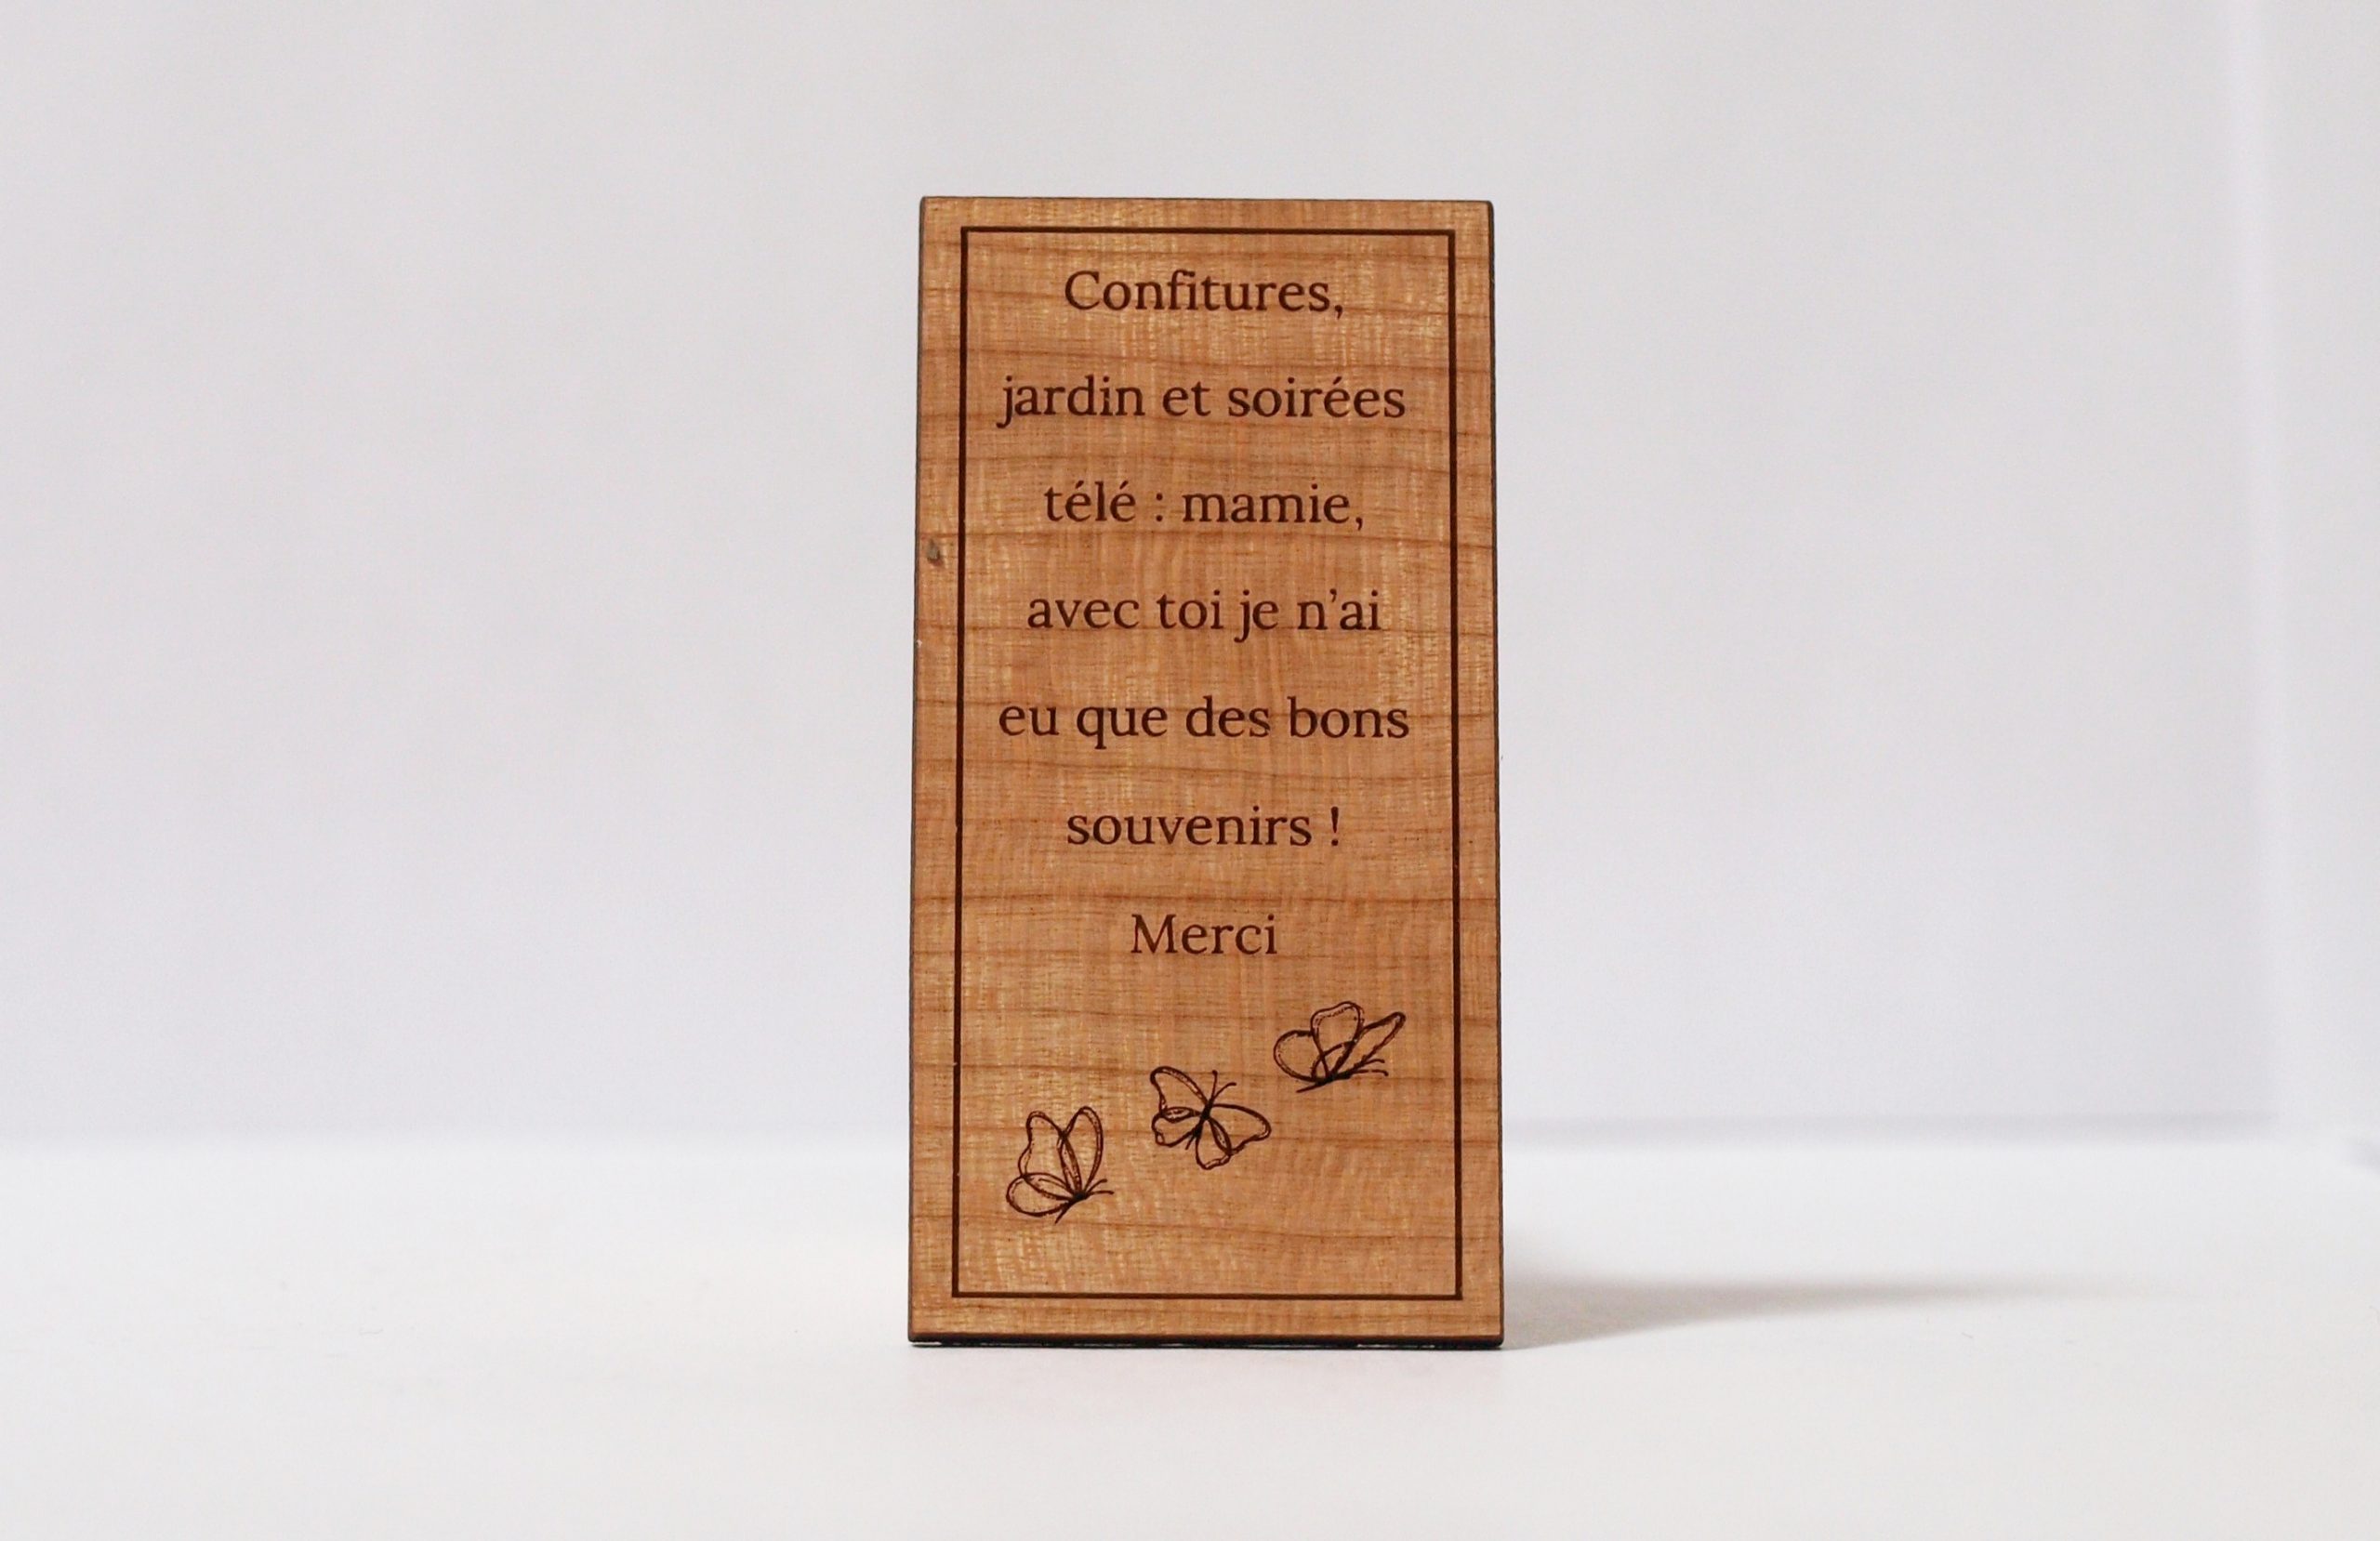 Confitures,
jardin et soirées
télé : mamie,
avec toi je n’ai
eu que des bons
souvenirs !
Merci